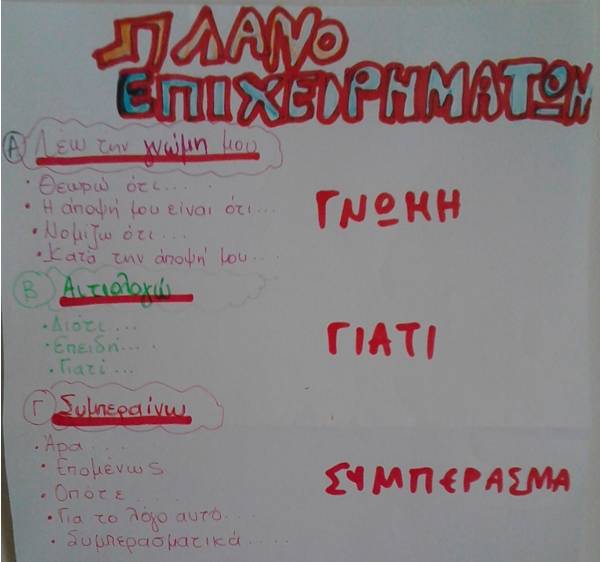 ΠΛΑΝΟ
ΕΠΙΧΕΙΡΗΜΑΤΩΝ
Α Λέω την γνώμη μου
• Θεωρώ ότι....
• Η άποψή μου είναι ότι...
• Νομίζω ότι...
• Κατά την άποψή μου...
ΓΝΩΜΗ
Β Αιτιολογώ
• Διότι...
• Επειδή....
• Γιατί...
ΓΙΑΤΙ
Γ Συμπεραίνω
• Άρα....
• Επομένως
• Οπότε....
• Για το λόγο αυτό....
• Συμπερασματικά.....
ΣΥΜΠΕΡΑΣΜΑ